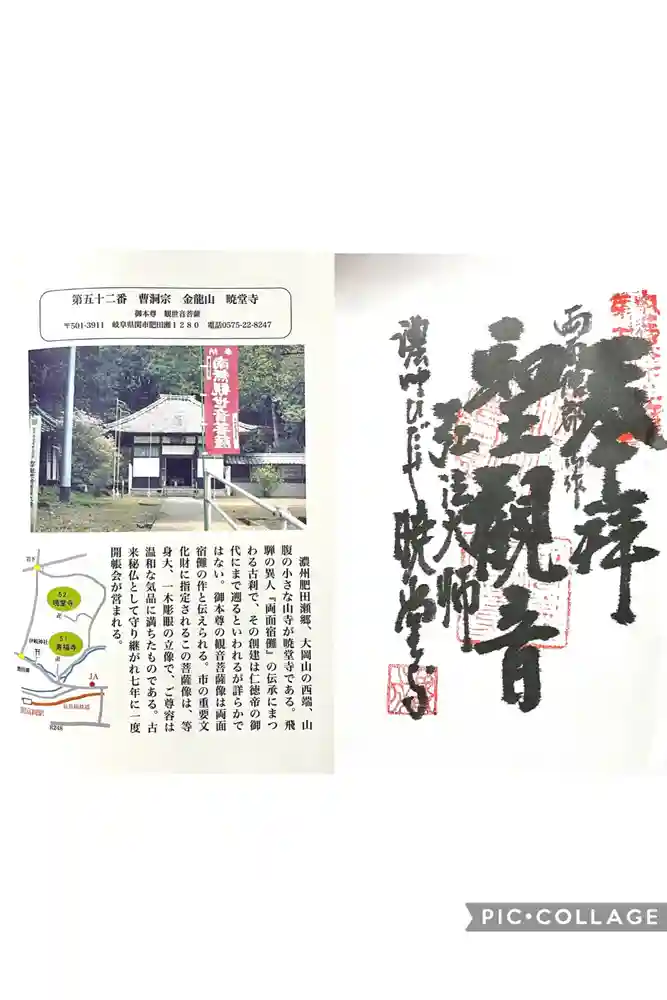 第五十二番 曹洞宗 金龍山 暁堂寺
御本尊 観世音菩薩
〒501-3911 岐阜県関市肥田瀬1280 電話0575-22-8247
南無観世音菩薩
濃州肥田瀬郷、大岡山の西端、山
腹の小さな山寺が暁堂寺である。飛
騨の異人『両面宿儺』の伝承にまつ
わる古刹で、その創建は仁徳帝の御
代にまで遡るといわれるが詳らかで
はない。御本尊の観音菩薩像は両面
宿儺の作と伝えられる。市の重要文
化財に指定されるこの菩薩像は、等
身大、一木彫眼の立像で、ご尊容は
温和な気品に満ちたものである。古
来秘仏として守り継がれ七年に一度
開帳会が営まれる。
52
暁堂寺
51
寿福寺
JA
248
奉拝
聖観音
弘法大師
暁堂寺
PIC•COLLAGE